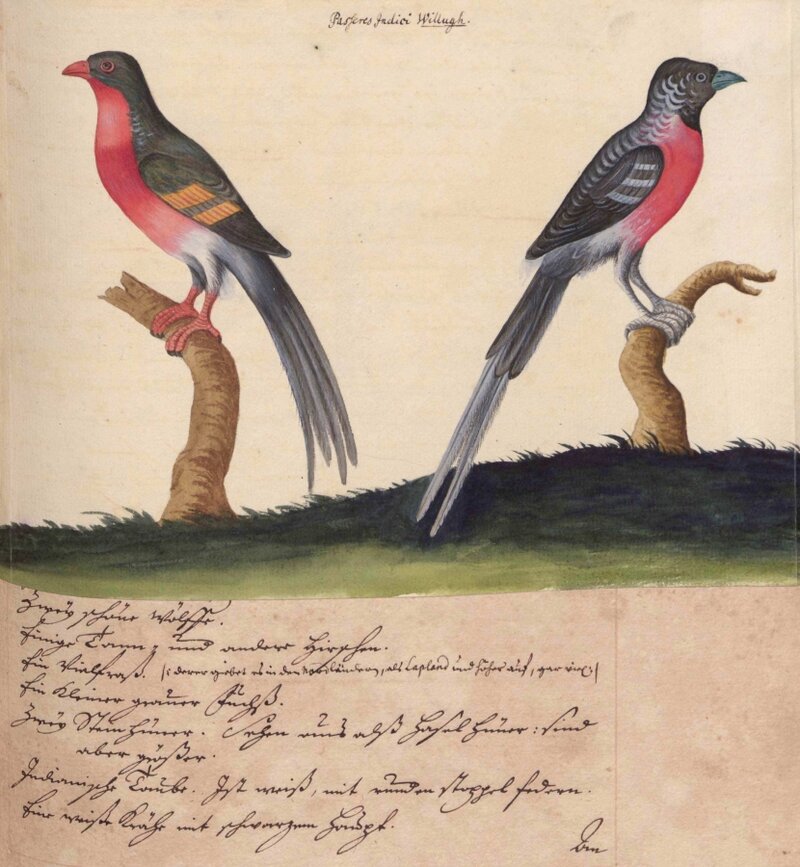 Passeres Indici Willugh.
Zwey schöne Wölffe.
Einige Tann- und andere Hirschen.
Ein Vielfraß. (: derer giebet es in den Nordländern, als Lapland und höher auf, gar viel :)
Ein Kleiner grauer Fuchß.
Zwey Steinhüner. Sehen auß alß Hasel hüner: sind
aber größer.
Indianische Taube. Ist weiß, mit runden stoppel federn.
Eine weiße Krähe mit schwarzem Haupt.